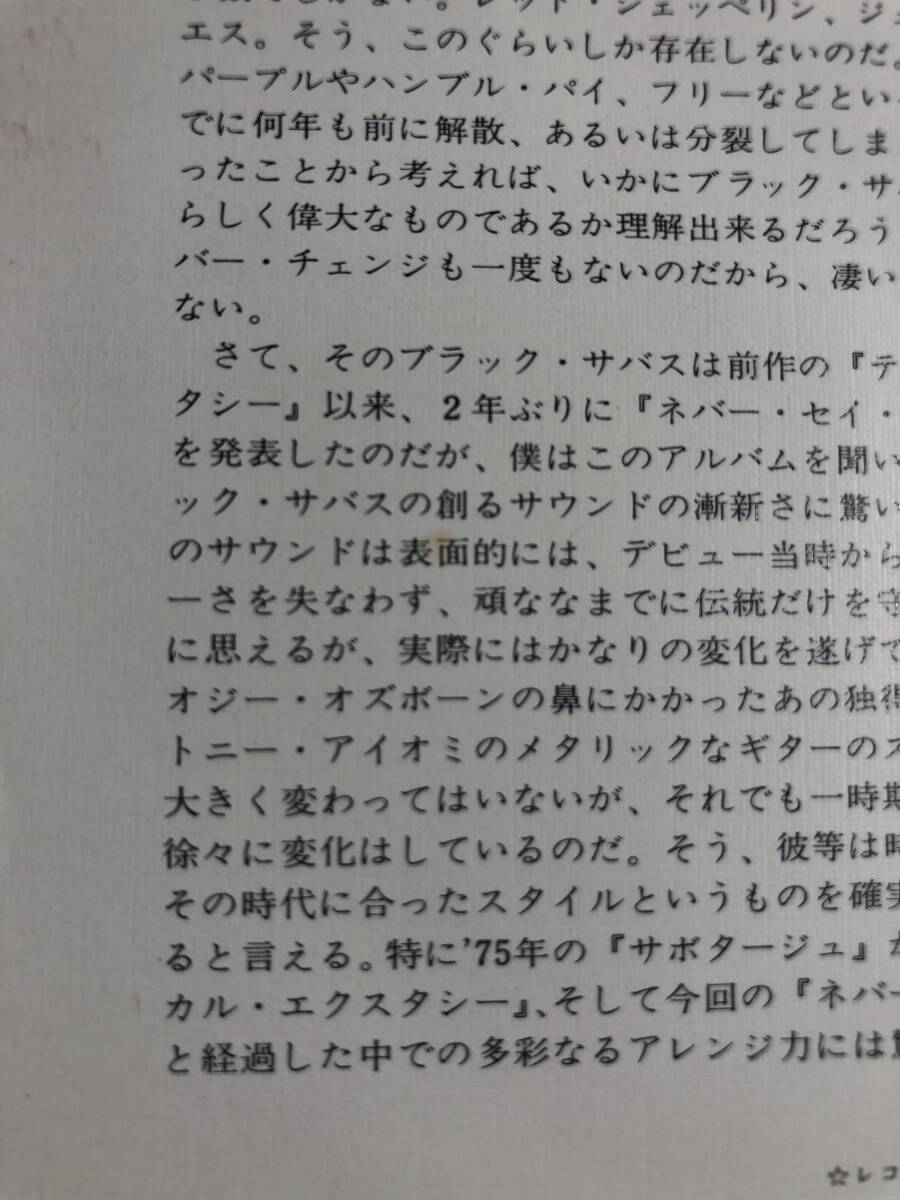 エス。そう、このぐらいしか存在しないのだ。
パープルやハンブル・パイ、フリーなどとい
でに何年も前に解散、あるいは分裂してしま
ったことから考えれば、いかにブラック・サ
らしく偉大なものであるか理解出来るだろう
バー・チェンジも一度もないのだから、凄い
ない。
さて、そのブラック・サバスは前作の『テ
タシー』以来、2年ぶりに『ネバー・セイ・
を発表したのだが、僕はこのアルバムを聞い
ック・サバスの創るサウンドの漸新さに驚い
のサウンドは表面的には、デビュー当時から
ーさを失なわず、頑ななまでに伝統だけを守
に思えるが、実際にはかなりの変化を遂げて
オジー・オズボーンの鼻にかかったあの独得
トニー・アイオミのメタリックなギターのス
大きく変わってはいないが、それでも一時期
徐々に変化はしているのだ。そう、彼等は時
その時代に合ったスタイルというものを確実
ると言える。特に'75年の『サボタージュ』か
カル・エクスタシー』、そして今回の『ネバー
と経過した中での多彩なるアレンジ力には驚
☆レコ